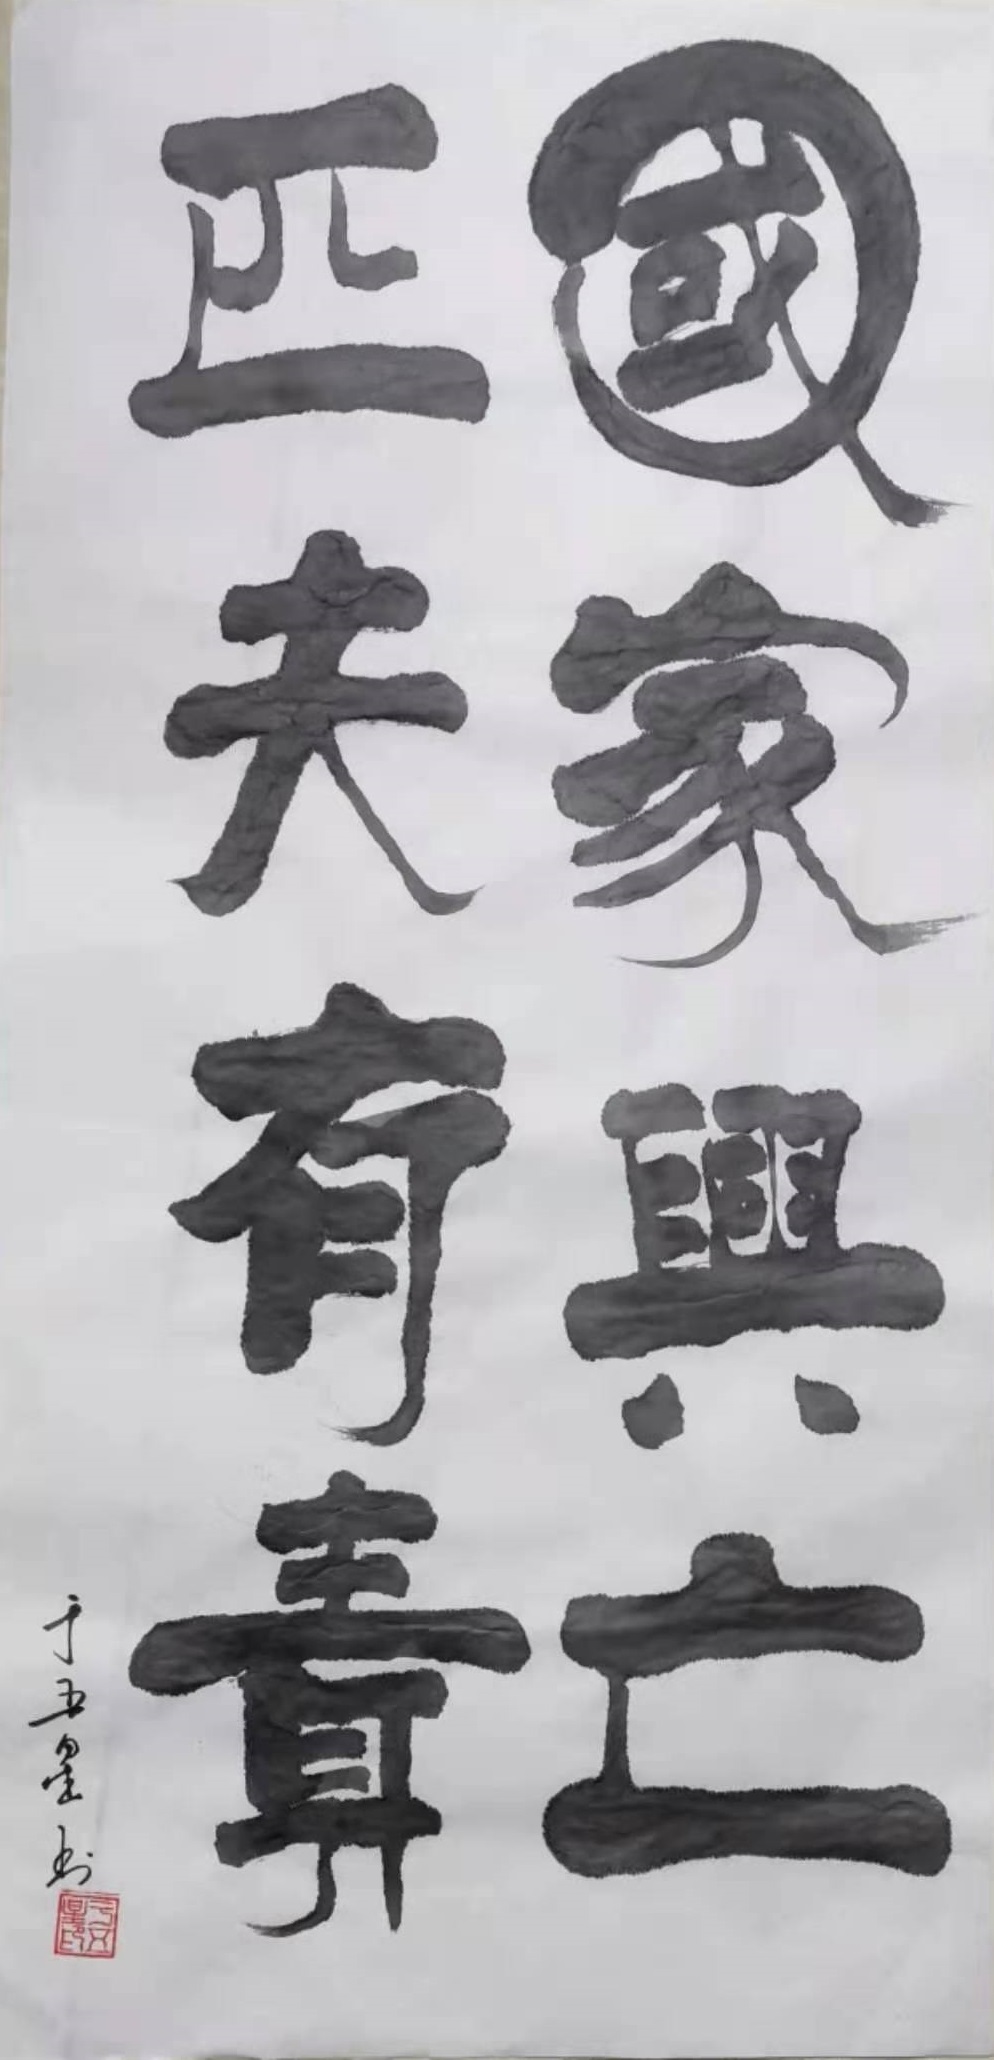 國家興亡
匹夫有責
于五星书